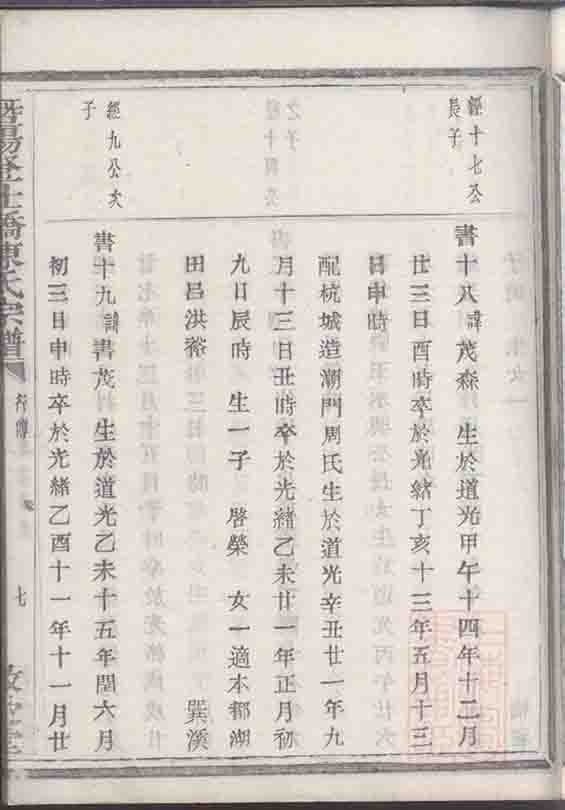 經十七公
長子
書十八諱茂森 生於道光甲午十四年十二月
廿三日酉時卒於光緒丁亥十三年五月十三
日申時
配杭城造潮門周氏生於道光辛丑廿一年九
月十三日丑時卒於光緒乙未廿一年正月初
九日辰時 生一子 啓榮 女一適本都湖
田呂洪裕 巽溪
經九公次
子
書十九諱書茂 生於道光乙未十五年閏六月
初三日申時卒於光緒乙酉十一年十一月廿
陳氏宗譜
行傳
七